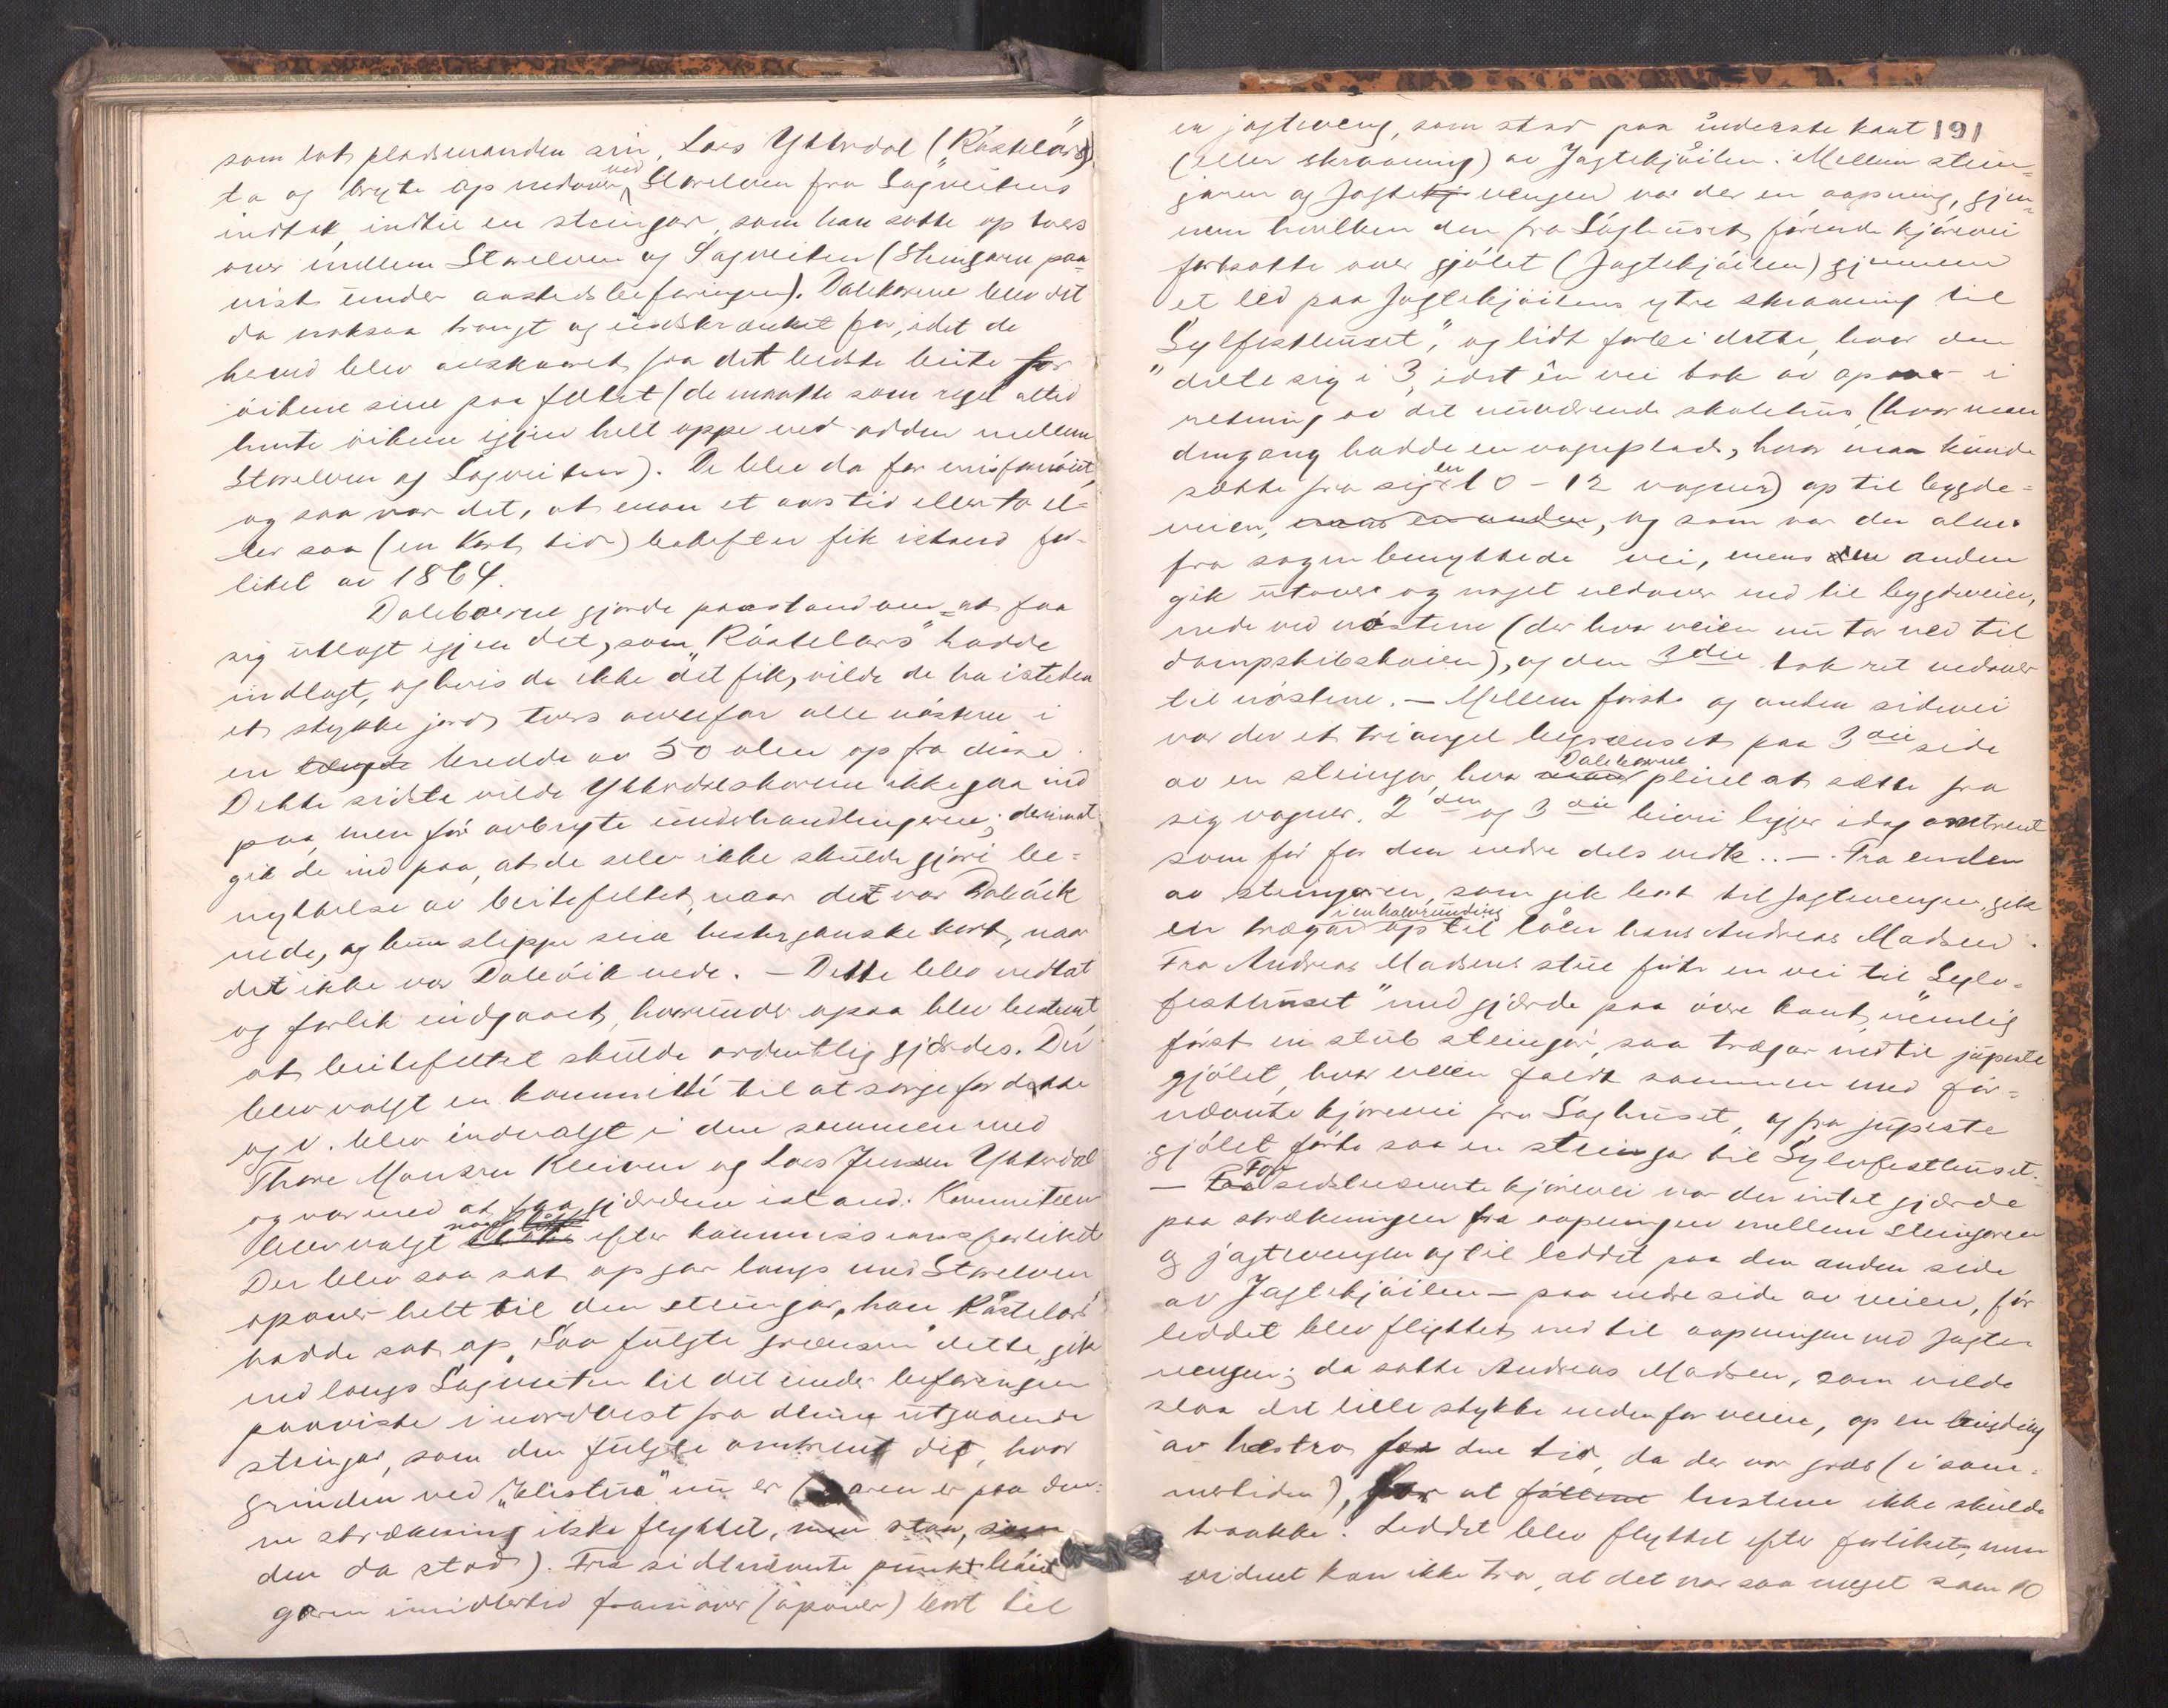 som lot pladsmanden sin, Lars Ytterdal („Råskelars")
ta og bryte op nedover ved Storelven fra Sagveitens
indtak indtil en steingar, som han satte op tvers
over mellem Storelven og Sagveiten (Steingaren paa-
vist under aastedsbefaringen). Dalebøerne blev det
da noksaa trangt og indskrænket for, idet de
herved blev avskaaret fra det bedste beite for
øikene sine paa feltet (de maatte som regel altid
hente øikene igjen helt oppe ved odden mellem
Storelven og Sagveiten). De blev da for misfornøiet,
og saa var det, at man et aars tid eller to el-
ler saa (en kort tid) bakefter fik istand for-
liket av 1864.
Dalebøerne gjorde paastand om at faa
sig utlagt igjen det, som „Råskelars" hadde
indlagt, og hvis de ikke det fik, vilde de ha isteden
et stykke jord tvers ovenfor alle nøstene i
en længde bredde av 50 alen op fra disse.
Dette sidste vilde Ytterdalskarene ikke gaa ind
paa, men før avbryte underhandlingerne; derimot
gik de ind paa, at de selv ikke skulde gjøre be-
nyttelse av beitefeltet, naar det var Daleøik
nede, og kun slippe sine hester ganske kort, naar
det ikke var Daleøik nede. – Dette blev vedtat
og forlik indgaaet, hvorunder ogsaa blev bestemt
at beitefeltet skulde ordentlig gjærdes. Der
blev valgt en kommitté til at sørge for dette
og v. blev indvalgt i den sammen med
Thore Monsen Kleiven og Lars Jensen Ytterdal
og var med at faa gjærdene istand. Komiteen
blev valgt efter kommissionsforliket
Der blev saa sat op gar langs med Storelven
opover helt til den steingar, han „Råskelars"
hadde sat op. Saa fulgte grænsen dette, gik
ned langs Sagveiten til det under befaringen
paaviste i nordvest fra denne utgaaende
steingar, som den fulgte omtrent dit, hvor
grinden ved „Elistua" nu er (garen er paa den-
ne strækning ikke flyttet, men staar, som
den da stod). Fra sidstnævnte punkt bøiet
garen imidlertid framover (opover) bort til
191
en jagteveng, som stod paa inderste kant
(eller skraaning) av Jagtekjøilen. Mellem stein-
garen og Jagtekj vengen var der en aapning, gjen-
nem hvilken den fra Saghuset førende kjørevei
fortsatte over gjølet (Jagtekjøilen) gjennem
et led paa Jagtekjøilens ytre skraaning til
„Sylfesthuset", og lidt forbi dette, hvor den
delte sig i 3, idet en vei tok av opover i
retning av det nuværende skolehus (hvor man
dengang hadde en vognplads, hvor man kunde
sætte fra sig en 10 – 12 vogner) op til bygde-
veien, mens en anden, og som var den alm.
fra sagen benyttede vei, mens den anden
gik utover og noget nedover ned til bygdeveien,
nede ved nøstene (der hvor veien nu tar ned til
dampskibskaien), og den 3die tok ret nedover
til nøstene. – Mellem første og anden sidevei
var der et triangel begrænset paa 3die side
av en steingar, hvor Dalebøerne pleiet at sætte fra
sig vogner. 2den og 3die vei ligger idag omtrent
som før for den nedre dels vedk.. – Fra enden
av steingaren, som gik bort til Jagtevengen, gik
en trægard i en halvrunding op til løen hans Andreas Madsen.
Fra Andreas Madsens stue førte en vei til „Sylv-
festhuset" med gjærde paa øvre kant, nemlig
først en stub steingar, saa trægar ned til jupeste
gjølet, hvor veien faldt sammen med før-
nævnte kjørevei fra Saghuset, og fra jupeste
gjølet førte saa en steingar til Sylvfesthuset.
– For sidstnævnte kjørevei var der intet gjærde
paa strækningen fra aapningen mellem steingaren
og jagtevengen og til leddet paa den anden side
av Jagtekjøilen – paa nedre side av veien, før
leddet blev flyttet ned til aapningen ved Jagte-
vengen; da satte Andreas Madsen, som vilde
slaa det lille stykke nedenfor veien, op en
av hestra for den tid, da der var græs (i som-
mertiden), for at føttene hestene ikke skulde
traakke. Leddet blev flyttet efter forliket, men
vidnet kan ikke tro, at det var saa meget som 10